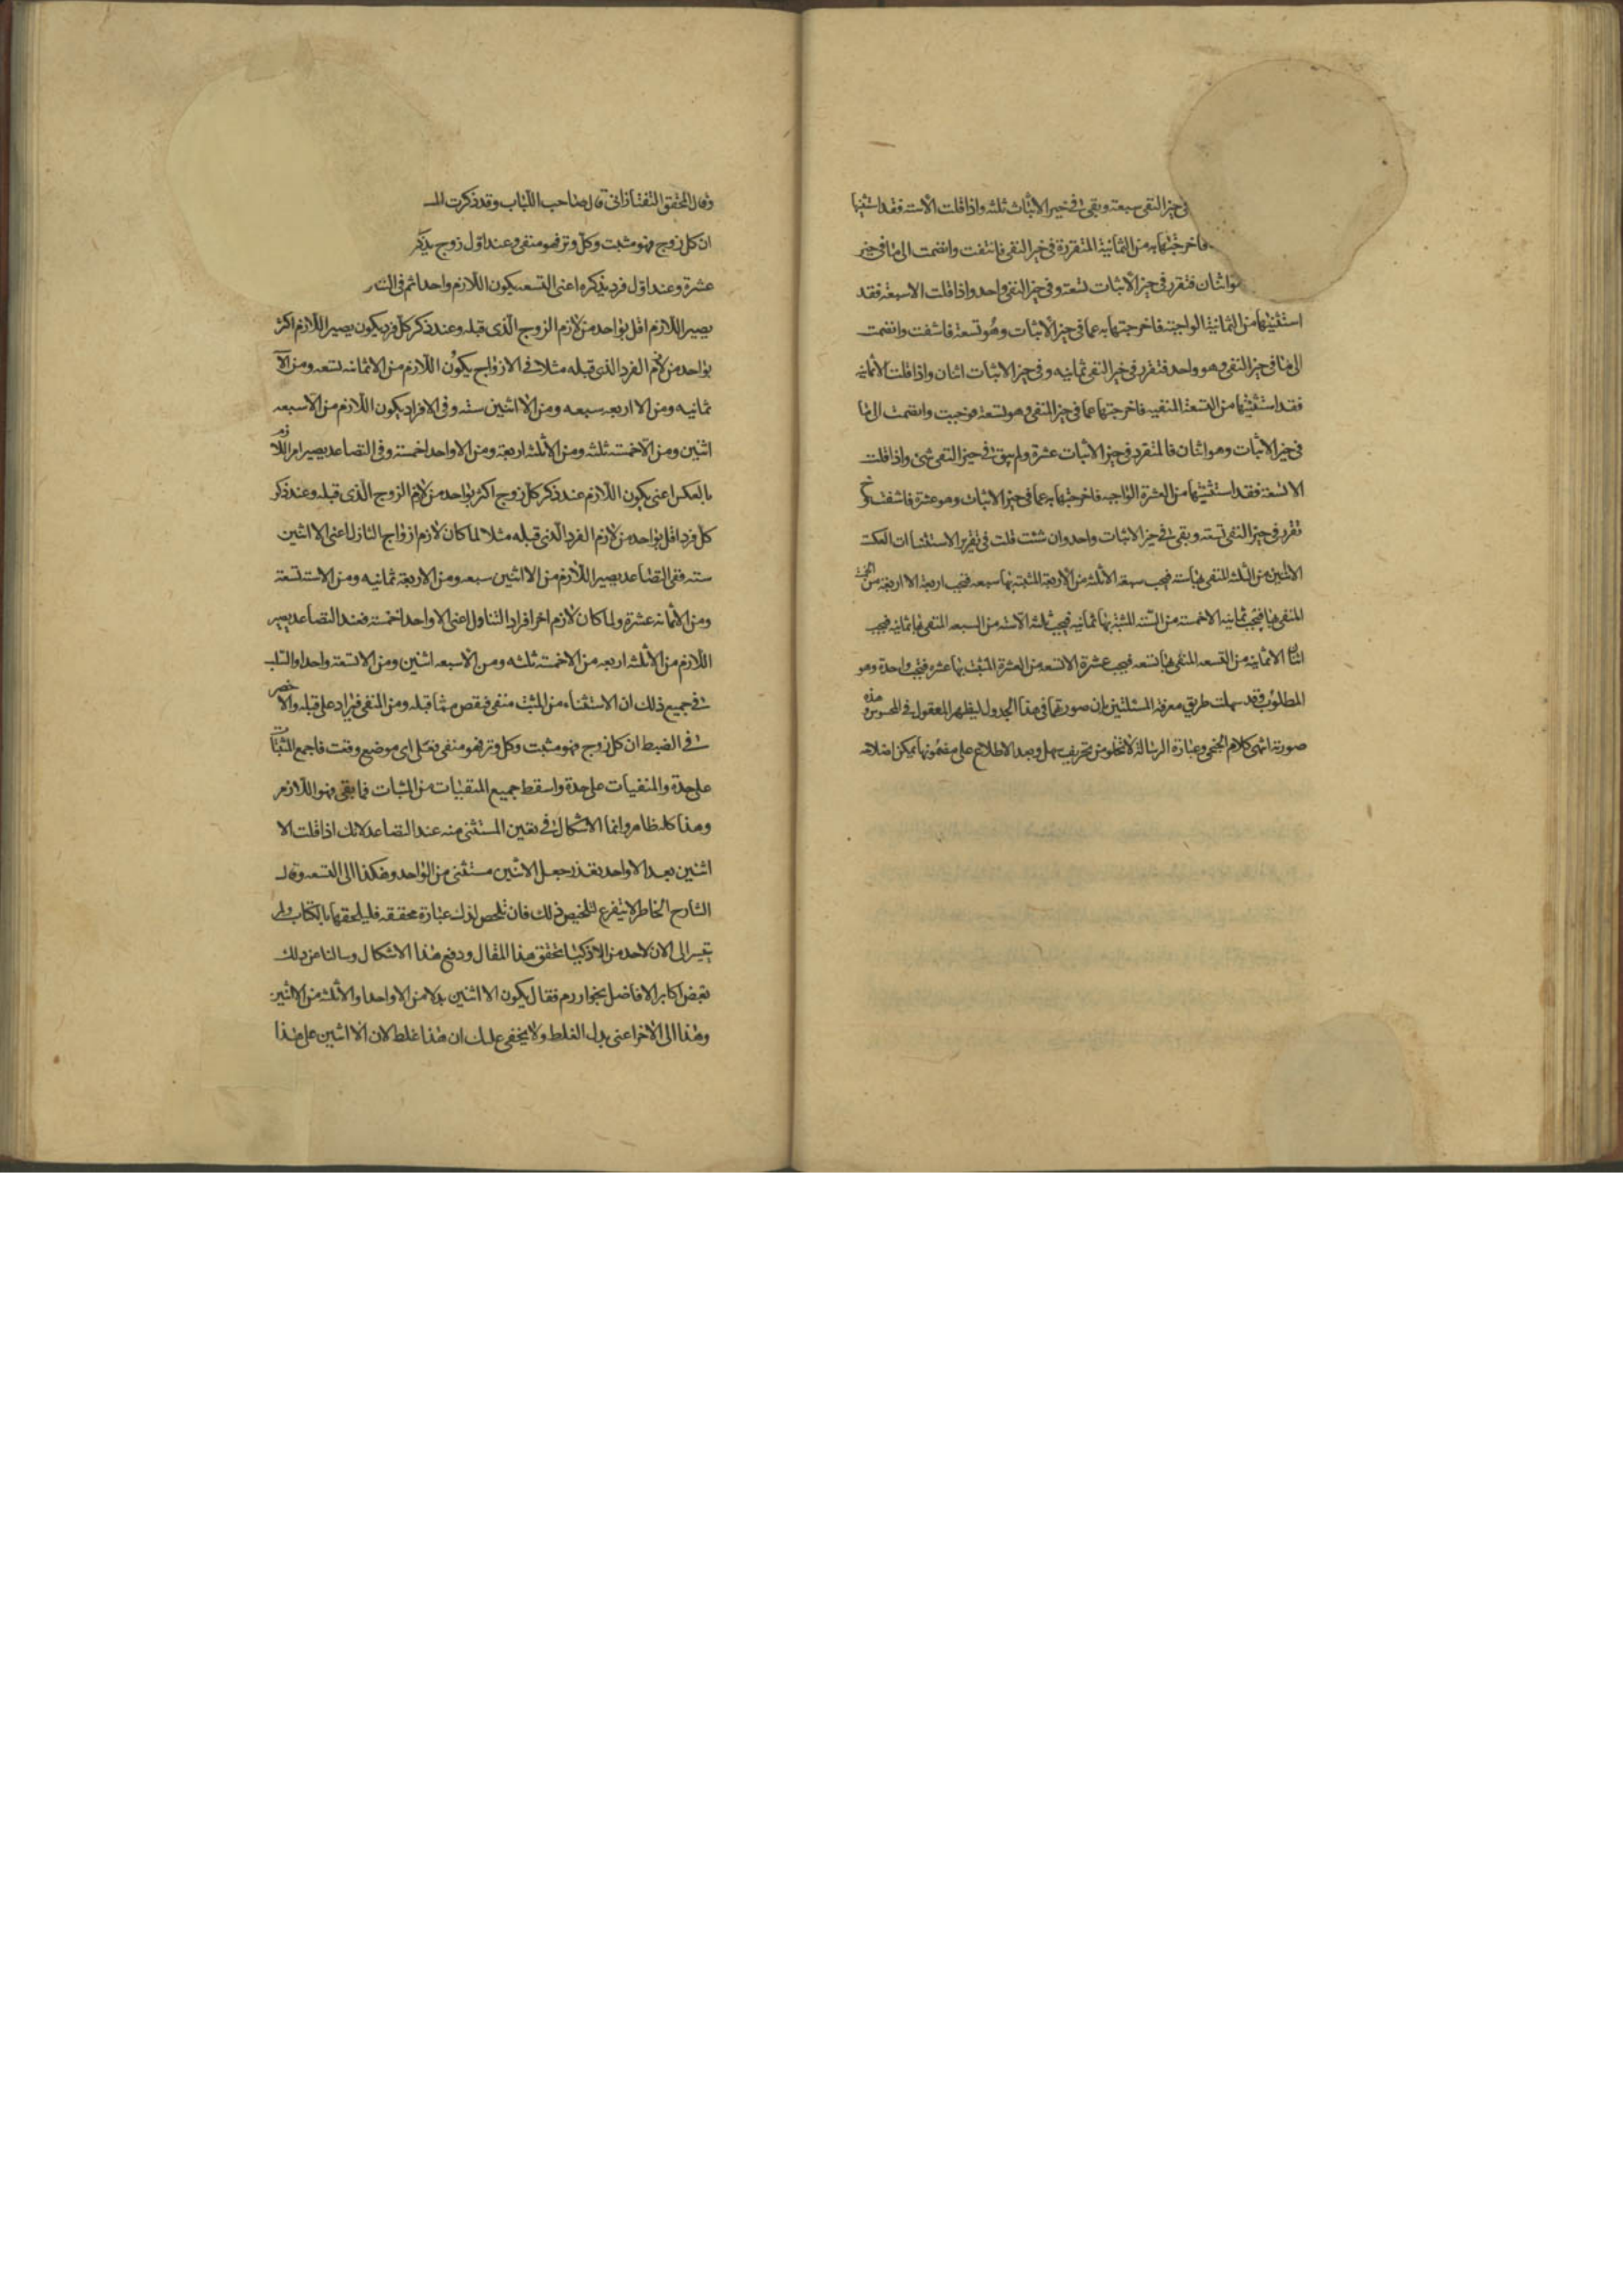 في حيز النفي سبعة وبقي في حيز الاثبات ثلثه واذا قلت الا سته فقد استثنيتها
فاخرجتها به من الثمانية المتقررة في حيز النفي فانتفت وانضمت الى ما في حيز
واثنان فتقرر في حيز الاثبات تسعة وفي حيز النفي واحد واذا قلت الا سبعة فقد
استثنيتها من الثمانية الواجبة فاخرجتها به عما في حيز الاثبات وهو تسعة فانتفت وانضمت
الى ما في حيز النفي وهو واحد فتقرر في حيز النفي ثمانيه وفي حيز الاثبات اثنان واذا قلت الا ثمانيه
فقد استثنيتها من التسعة المنفيه فاخرجتها عما في حيز النفي وهو تسعة فوجبت وانضمت الى ما
في حيز الاثبات وهو اثنان فالمتقرر في حيز الاثبات عشرة ولم يبق في حيز النفي شئ واذا قلت
الا تسعة فقد استثنيتها من العشرة الواجبه فاخرجتها به عما في حيز الاثبات وهو عشرة فانتفت وح
تقرر في حيز النفي تسعة وبقي في حيز الاثبات واحد وان شئت قلت في تقرير الاستثناات العكس
الا اثنين من الثلثه المنفي بها سته فيجب سبعة الا ثلثه من الاربعة المثبته بها سبعه فيجب اربعة الا اربعة من الخمسة
المنفي بها فيجب ثمانيه الا خمسة من السته المثبته بها ثمانيه فيجب ثلثه الا سته من السبعه المنفي بها ثمانيه فيجب
اثنان الا ثمانيه من التسعه المنفي بها تسعه فيجب عشرة الا تسعه من العشرة المثبت بها عشره فيجب واحدة وهو
المطلوب وقد سهلت طريق معرفة المسئلتين بان صورتهما في هذا الجدول ليظهر المعقول في المحسوس وهذه
صورته انتهى كلام الجمحى وعبارة الرسالة لا تخلو من تحريف سهل وبعد الاطلاع على مضمونها يمكن اصلاحه
وقال المحقق التفتازاني قال صاحب اللباب وقد ذكرت
ان كل زوج فهو مثبت وكل وتر فهو منفي وعند اول زوج يذكر
عشرة وعند اول فرد يذكره اعني التسعه يكون اللازم واحدا ثم في
يصير اللازم اقل بواحد من لازم الزوج الذي قبله وعند ذكر كل فرد يكون يصير اللازم اكثر
بواحد من لازم الفرد الذي قبله مثلا في الازواج يكون اللازم من الا ثمانيه تسعه ومن الا
ثمانيه ومن الا اربعه سبعه ومن الا اثنين سته وفي الافراد يكون اللازم من الا سبعه
اثنين ومن الا خمسة ثلثه ومن الا ثلثه اربعة ومن الا واحدا خمسة وفي التصاعد يصير امر اللازم
بالعكس اعني يكون اللازم عند ذكر كل زوج اكثر بواحد من لازم الزوج الذي قبله وعند ذكر
كل فرد اقل بواحد من لازم الفرد الذي قبله مثلا لما كان لازم ازواج التنازل اعني الا اثنين
سته ففي التصاعد يصير اللازم من الا اثنين سبعه ومن الا اربعة ثمانيه ومن الا سته تسعة
ومن الا ثمانه عشرة ولما كان لازم اخر افراد التناول اعني الا واحدا خمسة فعند التصاعد يصير
اللازم من الا ثلثه اربعه من الا خمسة ثلثه ومن الا سبعه اثنين ومن الا تسعة واحدا والسبب
في جميع ذلك ان الاستثناء من المثبت منفي فينقص مما قبله ومن المنفي فيزاد على قبله والاخصر
في الضبط ان كل زوج فهو مثبت وكل وتر فهو منفي فعلى اي موضع وقفت فاجمع المثبتات
على حدة والمنفيات على حدة واسقط جميع المنفيات من المثبات فما بقي فهو اللازم
وهذا كله ظاهر وانما الاشكال في تعين المستثنى منه عند التصاعد لانك اذا قلت الا
اثنين بعد الا واحد تعذر جعل الاثنين مستثنى من الواحد وهكذا الى التسعه وقال
الشارح الخاطر لا يتفرغ لتلخيص ذلك فان تلخص لذلك عبارة محققه فليلحقها بالكتاب ولم
يتيسر الى الان لاحد من الاذكيا تحقق هذا المقال ودفع هذا الاشكال وسالنا عن ذلك
بعض اكابر الافاضل بخوارزم فقال يكون الا اثنين بدلا من الا واحدا والا ثلثه من الا اثنين
وهذا الى الاخر اعني بدل الغلط ولا يخفى عليك ان هذا غلط لان الا اثنين على هذا